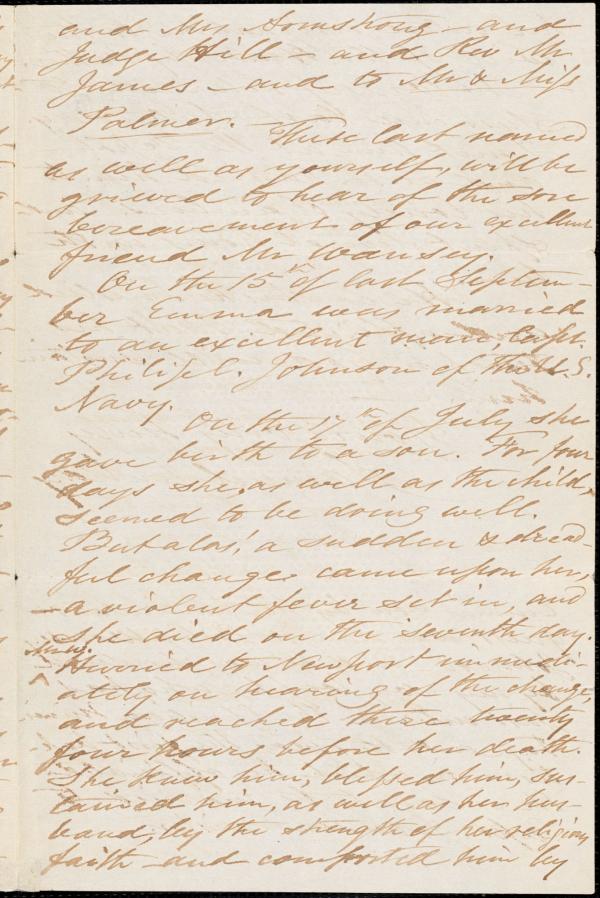 and Mrs Armstrong – and
Judge Hill – and Rev Mr
James – and to Mr & Miss
Palmer. – These last named
as well as yourself, will be
grieved to hear of the sore
bereavement of our excellent
friend Mr Wansey.
On the 15th of last Septem-
ber Emma was married
to an excellent man, Capt.
Philip C. Johnson of the U.S.
Navy.
On the 17th of July she
gave birth to a son. For four
days she, as well as the child,
seemed to be doing well.
But alas! a sudden & dread-
ful change came upon her,
– a violent fever set in, and
she died on the seventh day.
Hurried to Newport immedi-
ately on hearing of the change,
and reached there twenty
four hours before her death.
She knew him, blessed him, sus-
tained him, as well as her hus-
band, by the strength of her religious
faith – and comforted him by